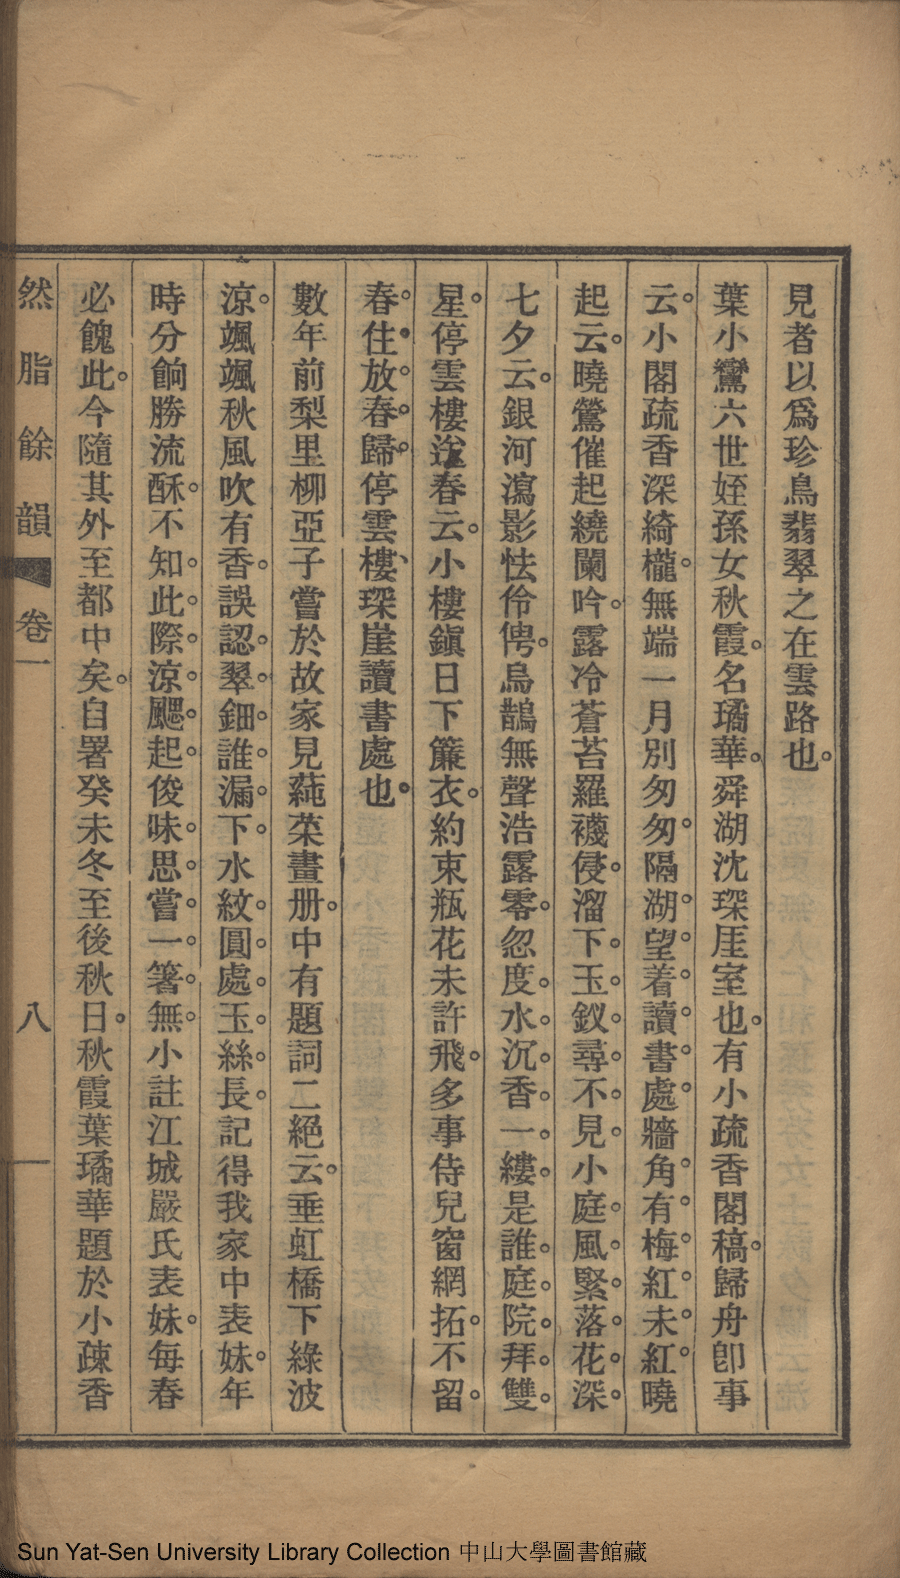 見者以爲珍鳥翡翠之在雲路也。
葉小鸞六世姪孫女秋霞。名璚華。舜湖沈琛厓室也。有小疏香閣稿。歸舟卽事
云。小閣疏香深綺櫳。無端一月別匆匆。隔湖。望。着。讀。書。處。牆角。有。梅。紅。未。紅。曉
起云。曉鶯催起繞闌吟。露冷蒼苔羅襪侵。溜下。玉。釵。尋。不。見。小庭。風。緊。落。花。深。
七夕云。銀河瀉影怯伶俜。烏鵲無聲浩露零。忽度。水。沉。香。一。縷。是誰。庭。院。拜。雙。
星。停雲樓送春云。小樓鎭日下簾衣。約束瓶花未許飛。多事侍兒窗網拓。不留。
春。住。放。春。歸。停雲樓、琛崖讀書處也。
數年前梨里柳亞子嘗於故家見蒓菜畫册。中有題詞二絕云。垂虹橋下綠波
涼。颯颯秋風吹有香。誤認。翠。鈿。誰。漏。下。水紋。圓。處。玉。絲。長。記得我家中表妹。年
時分餉勝流酥。不知。此。際。涼。颸。起。俊味。思。嘗。一。箸。無。小註江城嚴氏表妹。每春
必餽此。今隨其外至都中矣。自署癸未冬至後秋日。秋霞葉璚華題於小疎香
然脂餘韻 卷一 八
Sun Yat-Sen University Library Collection 中山大學圖書館藏